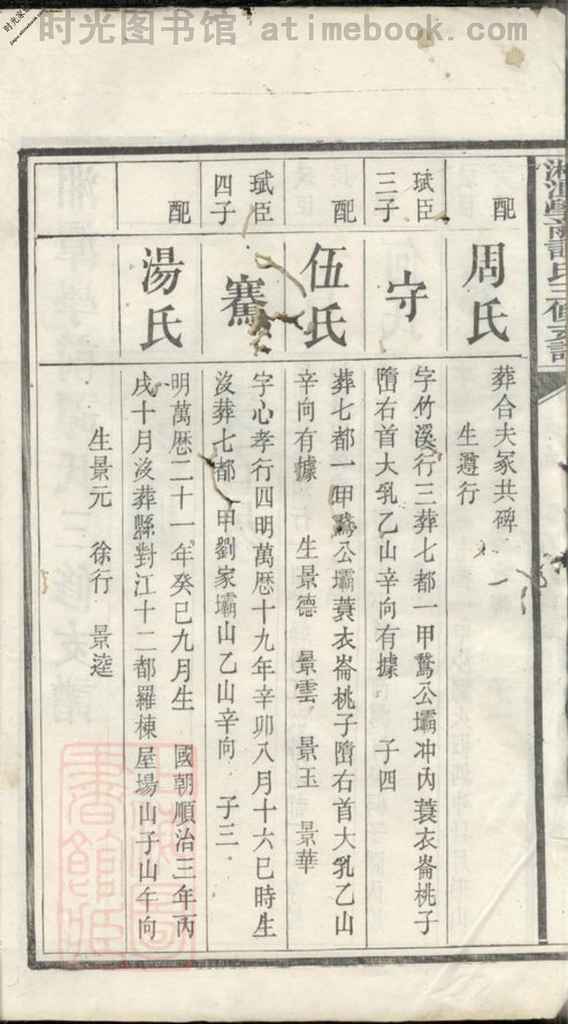 时光图书馆 atimebook.com
配
周氏
葬合夫冢共碑
生遵行
珷臣
三子
守
字竹溪行三葬七都一甲鵞公壩冲內蓑衣崙桃子
嶞右首大乳乙山辛向有據 子四
配
伍氏
葬七都一甲鵞公壩蓑衣崙桃子嶞右首大乳乙山
辛向有據 生景德 景雲 景玉 景華
珷臣
四子
騫
字心孝行四明萬厯十九年辛卯八月十六巳時生
沒葬七都一甲劉家壩山乙山辛向 子三
配
湯氏
明萬厯二十一年癸巳九月生 國朝順治三年丙
戌十月沒葬縣對江十二都羅棟屋場山子山午向
生景元 徐行 景逵